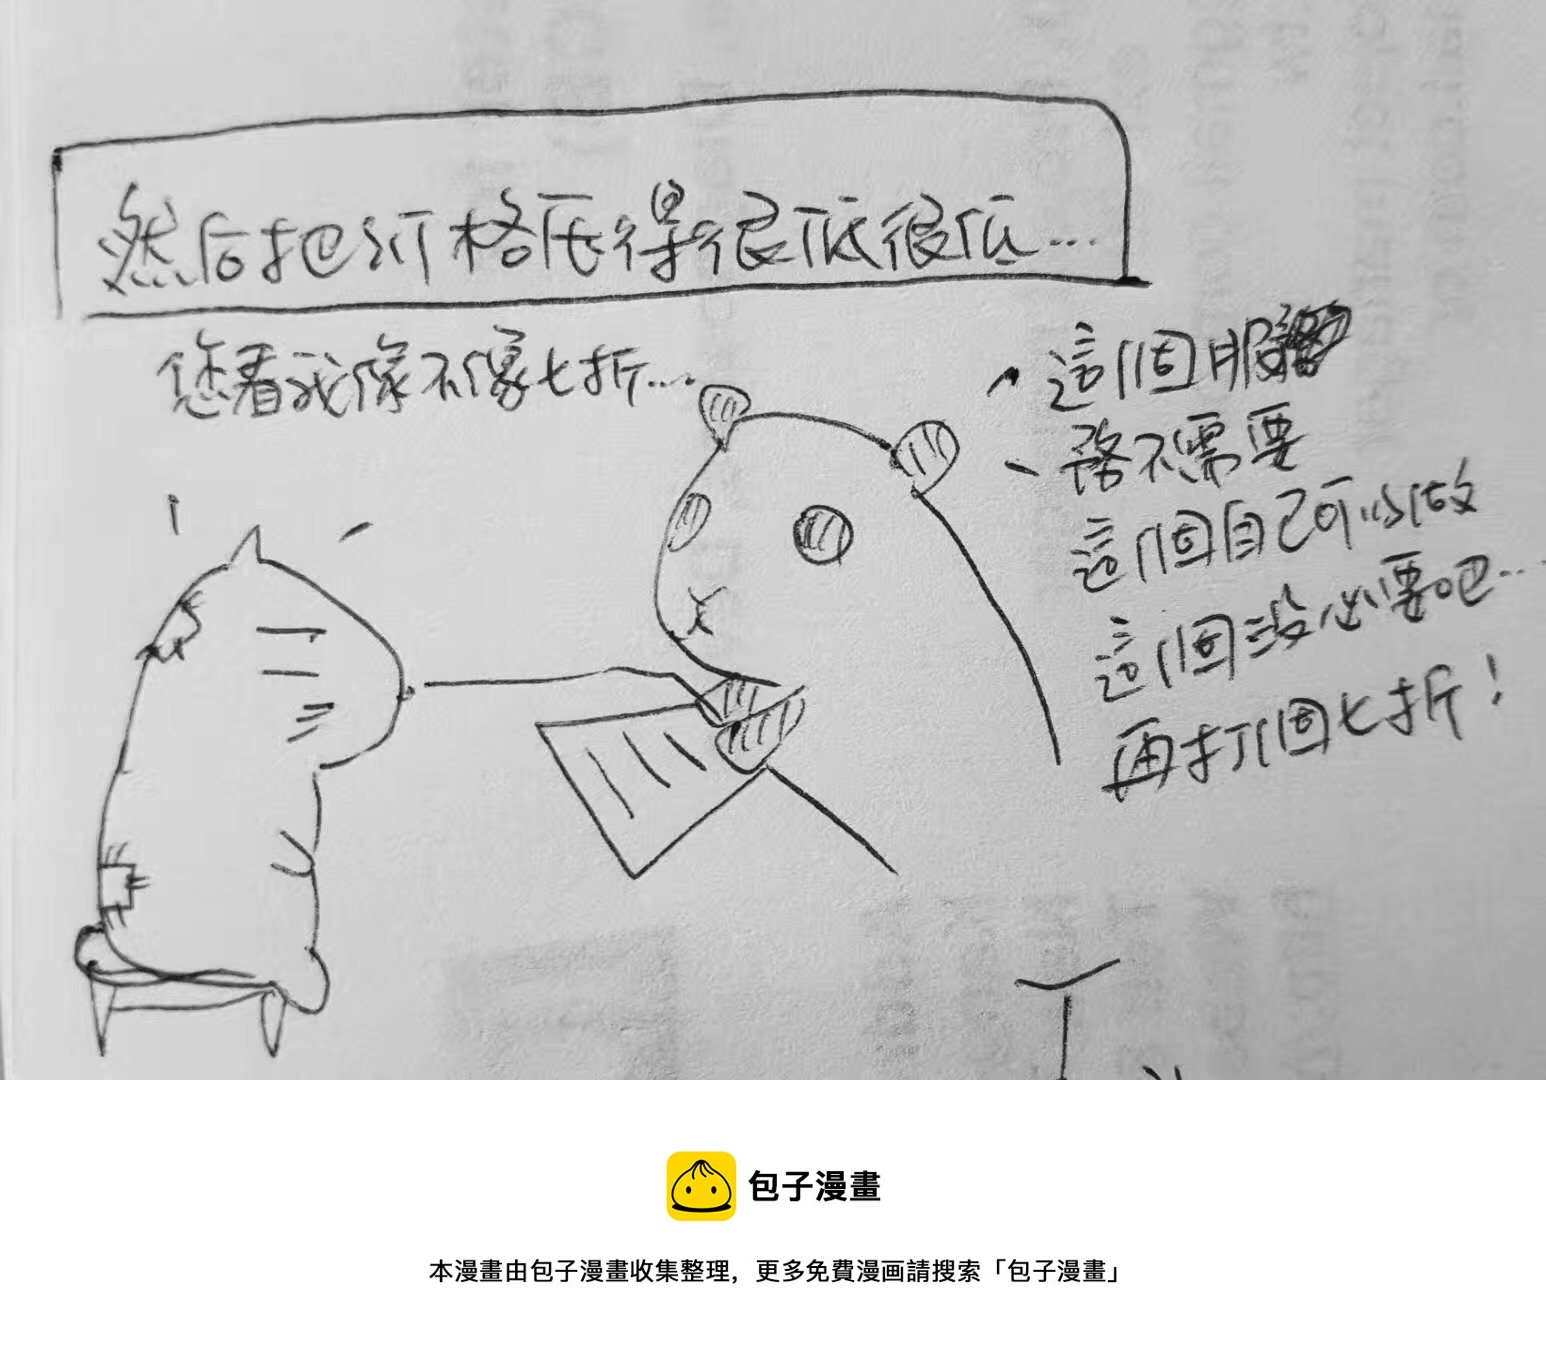 然后把价格压得很低很低…
您看我像不像七折…
這個服
務不需要
這個自己可以做
這個沒必要吧…
再打個七折！
包子漫畫
本漫畫由包子漫畫收集整理，更多免費漫画請搜索「包子漫畫」